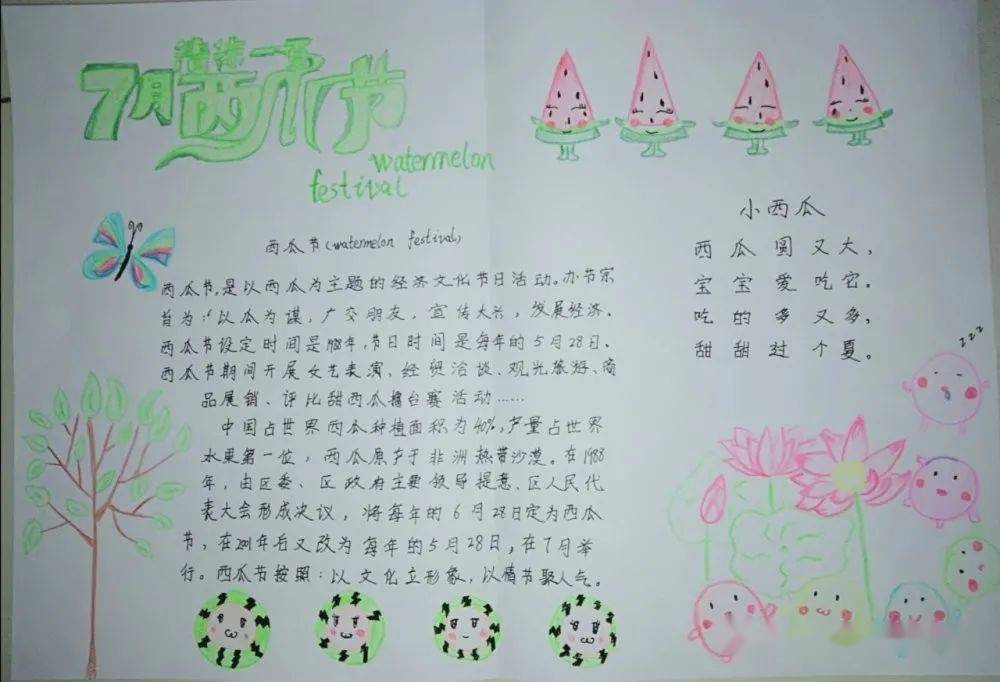 7月西瓜节
watermelon
festival
西瓜节(watermelon festival)
西瓜节,是以西瓜为主题的经济文化节日活动。办节宗
旨为:“以瓜为谋,广交朋友,宣传大兴,发展经济.
西瓜节设定时间是1988年,节日时间是每年的5月28日.
西瓜节期间开展文艺表演、经贸洽谈、观光旅游、商
品展销、评比甜西瓜擂台赛活动……
中国占世界西瓜种植面积为40%,产量占世界
水果第一位,西瓜原产于非洲热带沙漠。在1988
年,由区委、区政府主要领导提意、区人民代
表大会形成决议,将每年的6月28日定为西瓜
节,在2001年后又改为每年的5月28日,在7月举
行。西瓜节按照:以文化立形象,以情节聚人气。
小西瓜
西瓜圆又大,
宝宝爱吃它.
吃的多又多,
甜甜过个夏。
zzz